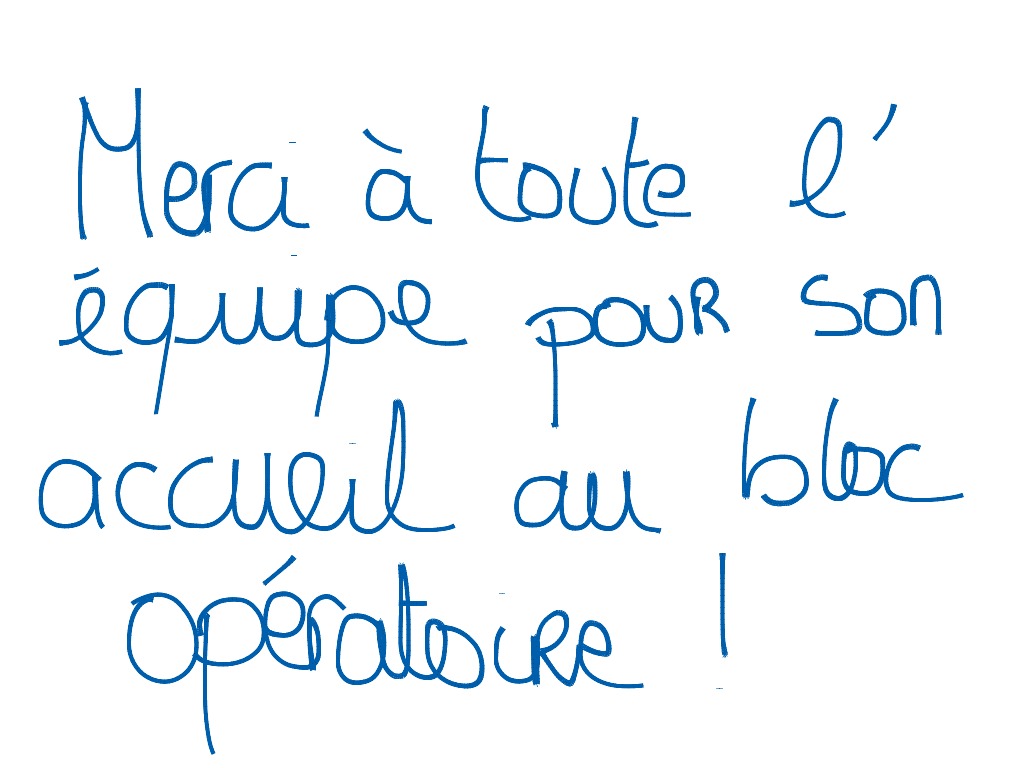 Merci à toute l'
équipe pour son
accueil au bloc
opératoire !